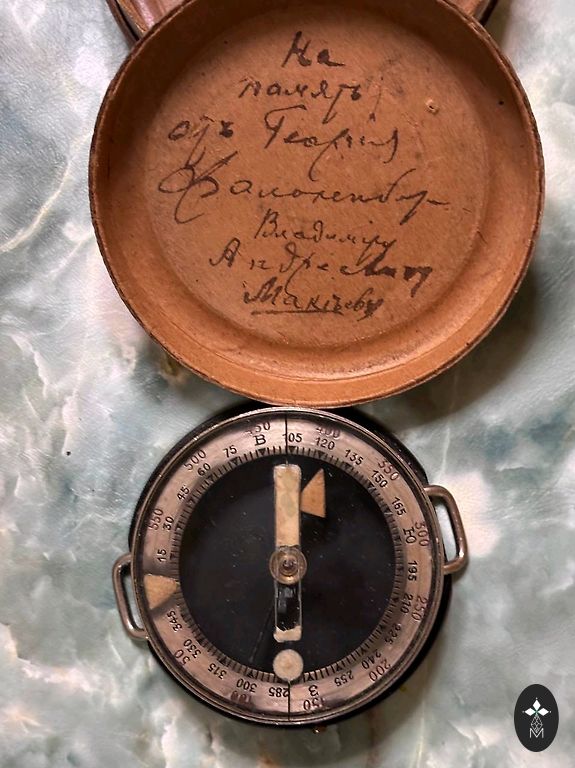 На
память
отъ Георгія
Владиміру
Андреевичу
Макѣеву
550 500 450 400 550 500 250 200 150 100 50
15 30 45 60 75 В 105 120 135 150 165 Ю 195 210 225 240 255 З 285 300 315 330 345
М